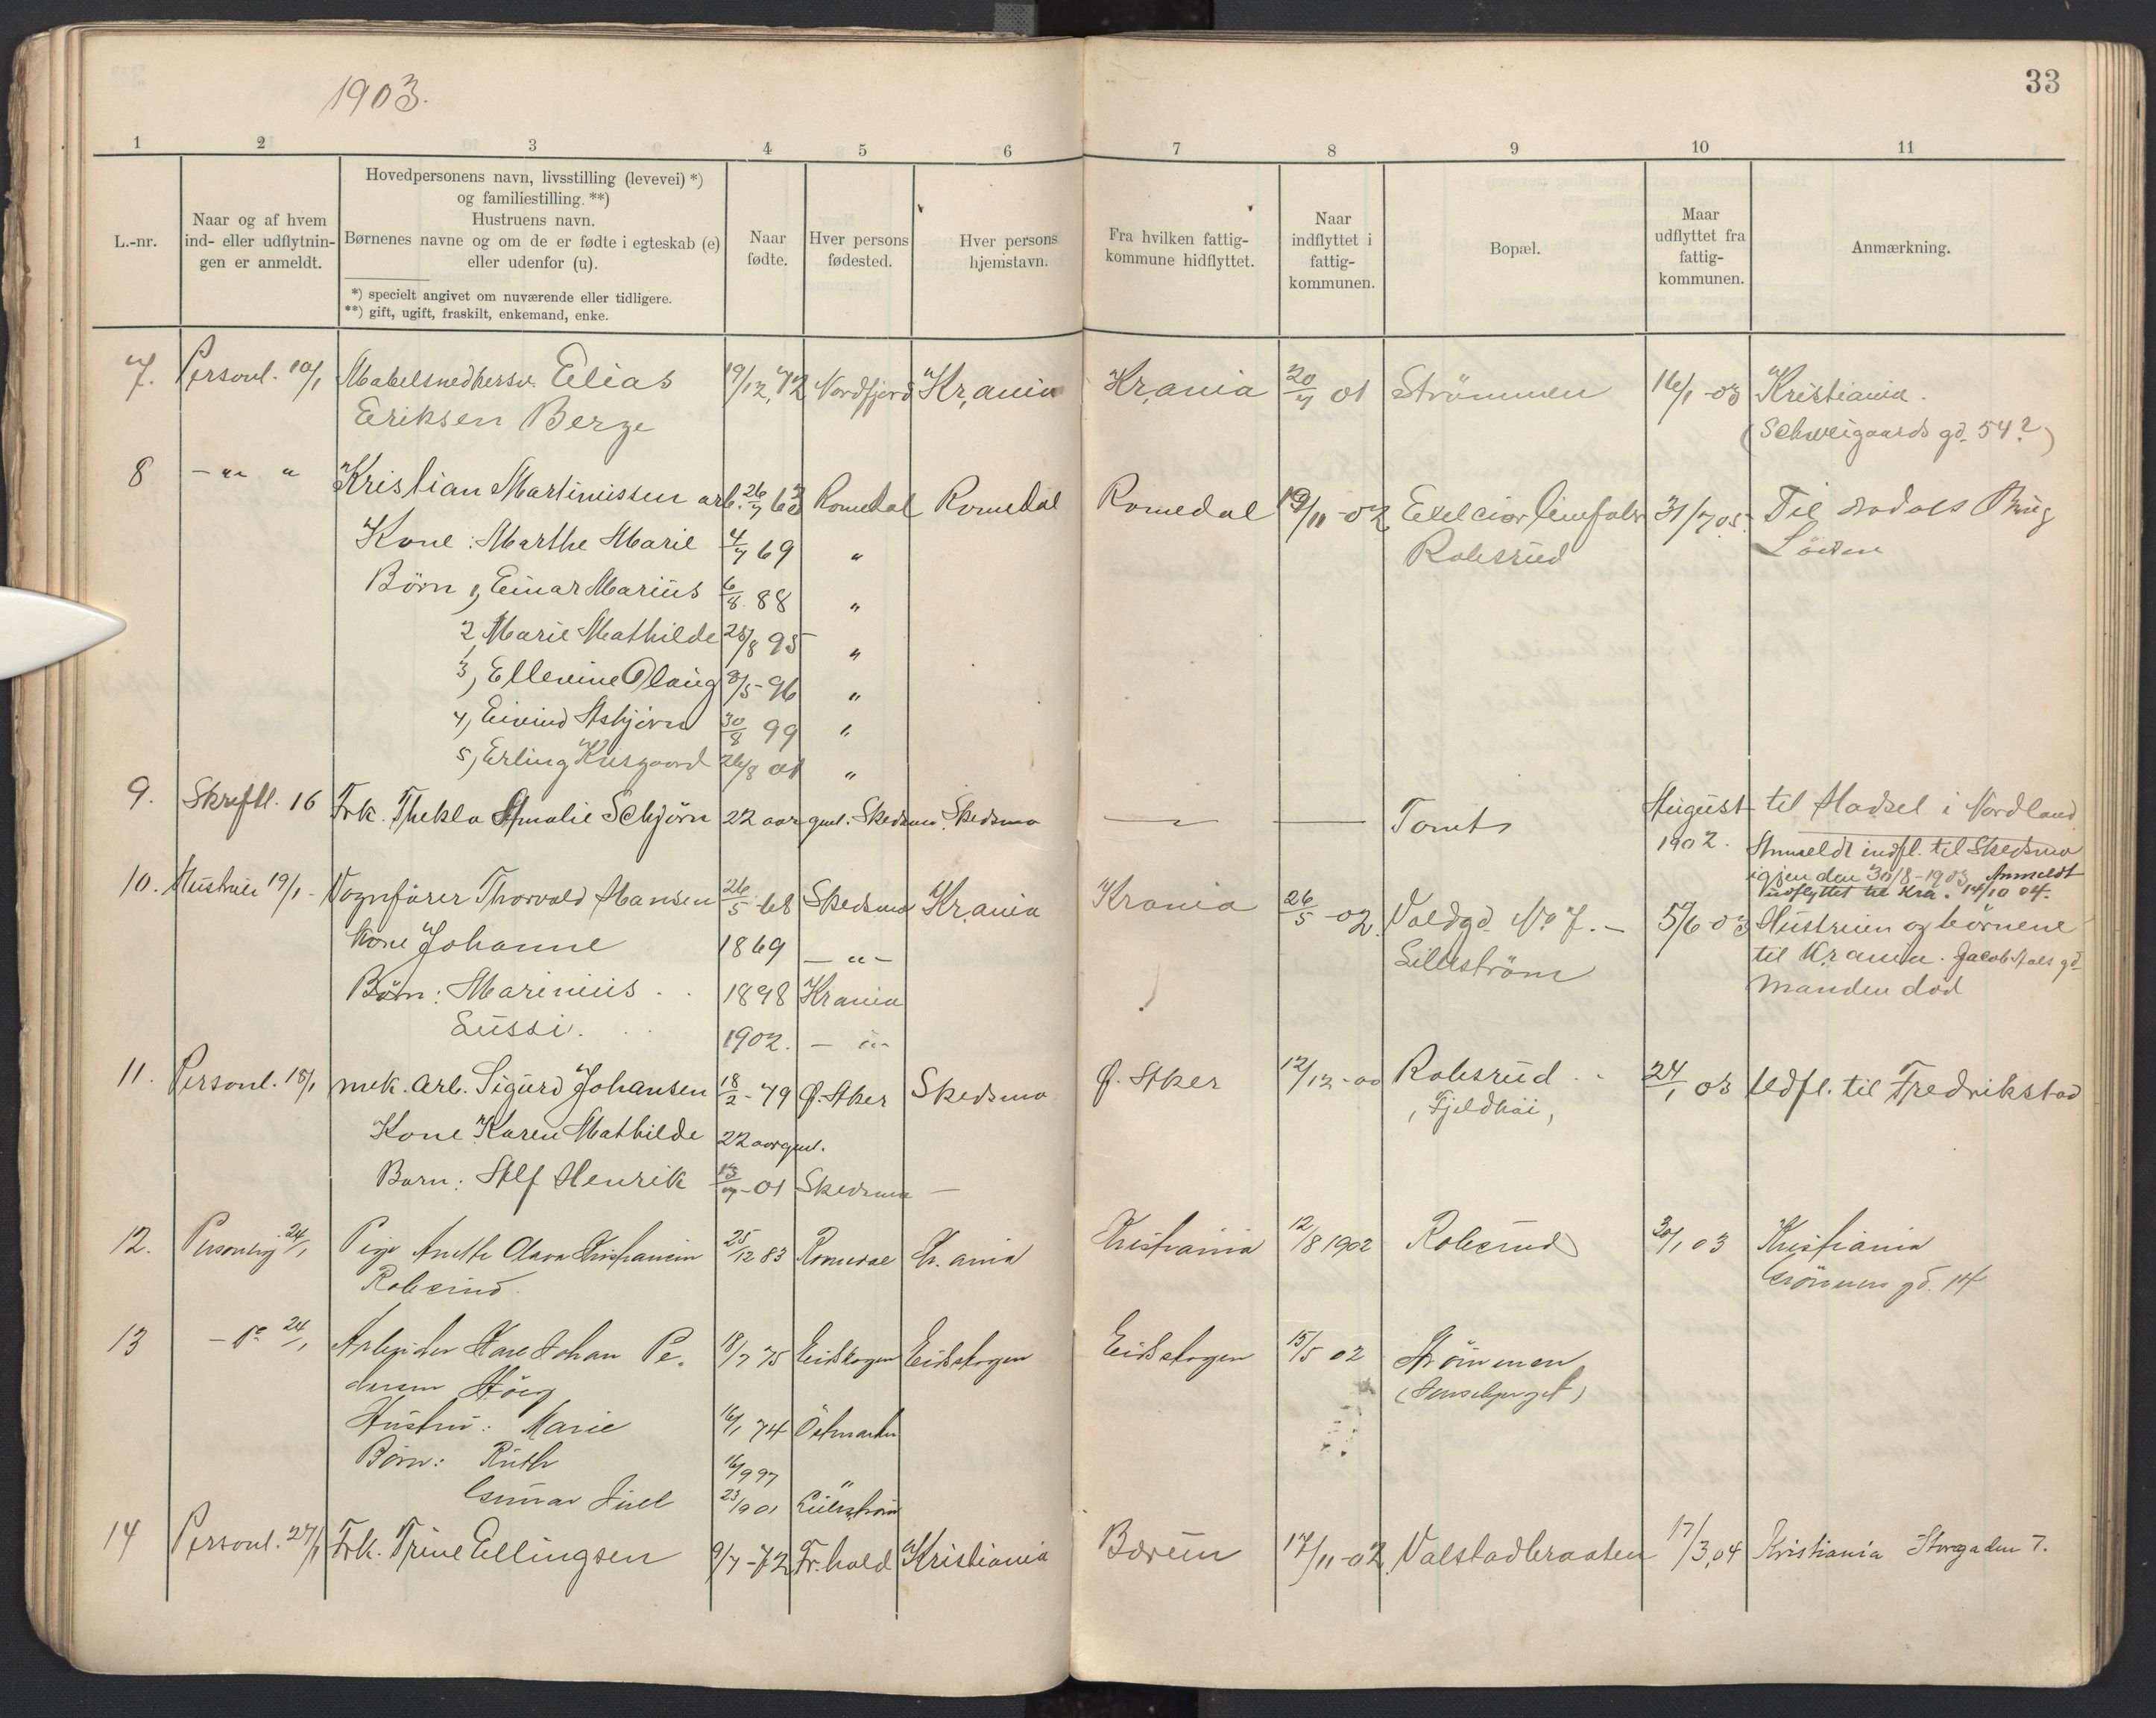 1903.
33
1 2 3 4 5 6 7 8 9 10 11
L.-nr.
Naar og af hvem
ind- eller udflytnin-
gen er anmeldt.
Hovedpersonens navn, livsstilling (levevei) *)
og familiestilling. **)
Hustruens navn.
Børnenes navne og om de er fødte i egteskab (e)
eller udenfor (u).
*) specielt angivet om nuværende eller tidligere.
**) gift, ugift, fraskilt, enkemand, enke.
Naar
fødte.
Hver persons
fødested.
Hver persons
hjemstavn.
Fra hvilken fattig-
kommune hidflyttet.
Naar
indflyttet i
fattig-
kommunen.
Bopæl.
Maar
udflyttet fra
fattig-
kommunen.
Anmærkning.
7. Personl. 10/1 Mabelsnedkersv. Elias 19/12, 72 Nordfjord Kr,ania Kr,ania 20/7 01 Strömmen 16/1 -03 Kristiania.
Eriksen Berge (Schweigaards gd. 54?)
8 - " " Kristian Martinussen arb. 26/7 63 Romedal Romedal Romedal 19/11 -02 Exelcior 31/7 05 Til Brug
Kone: Marthe Marie 4/7 69 " Robsrud Löiten
Börn 1, Einar Marius 6/8. 88 "
2, Marie Mathilde 25/8 95 "
3, Ellevine Olaug 8/5 - 96 "
4, Eivind Asbjörn 30/8 99 "
5, Erling 26/8 01 "
9. Skriftl. 16 Frk. Thekla Amalie Schjörn 22 aar gml. Skedsmo Skedsmo — — Tomt August til Hadsel i Nordland
1902. Anmeldt indfl. til Skedsmo
igjen den 30/8 - 1903 Anmeldt
udflyttet til Kra. 14/10 04.
10. Hustruen 19/1 - Vognfører Thorvald Hansen 26/5 - 68 Skedsmo Kr,ania Krania 26/5 - 02. Voldgd. No 7. - 5/6 03 Hustruen og börnene
Kone Johanne 1869 - " - Lilleström til Kr ania. Jacob Aals gd
Börn: Marinius . . 1898 Krania Manden död
Lussi. . . 1902. - " -
11. Personl. 18/1 mek. arb. Sigurd Johansen 18/2 - 79 Ø. Aker Skedsmo Ø. Aker 12/12 - 00 Robsrud . - 24/1 03 Udfl. til Fredrikstad
Kone Karen Mathilde 22 aar gml. , Fjeldhöi,
Barn: Alf Henrik 13/7 - 01 Skedsmo -
12. Personlig 24/1 Pige Anethe Olava Kristiansen 25/12 83 Romedal Kr. ania Kristiania 12/8 1902 Robsrud 30/1 03 Kristiania
Robsrud. gd. 14
13 - do 24/1 Arbeider Karl Johan Pe- 18/7 75 Eidskogen Eidskogen Eidskogen 15/5 02 Strömmen
dersen
Hustru: Marie 16/1 74 Östmarken
Börn: Ruth 16/9 97 "
Gunnar Juel 23/1901 Lilleström
14 Personl. 27/1 Frk. Trine Ellingsen 9/7 - 72 Fr.hald Kristiania Bærum 17/11 - 02. Valstadbraaten 17/3, 04 Kristiania Storgaden 7.